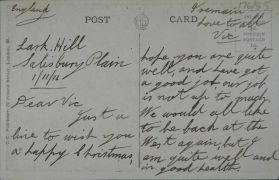 England
POST CARD
Lark Hill
Salisbury Plain
Dear Vic
Just a
line to wish you
a happy Christmas,
hope you are quite
well, and have got
a good job, our job
is not up to much
We would all like
to be back at the
West again, but I
am quite well and
in good health.
I remain
Love to all
Vic